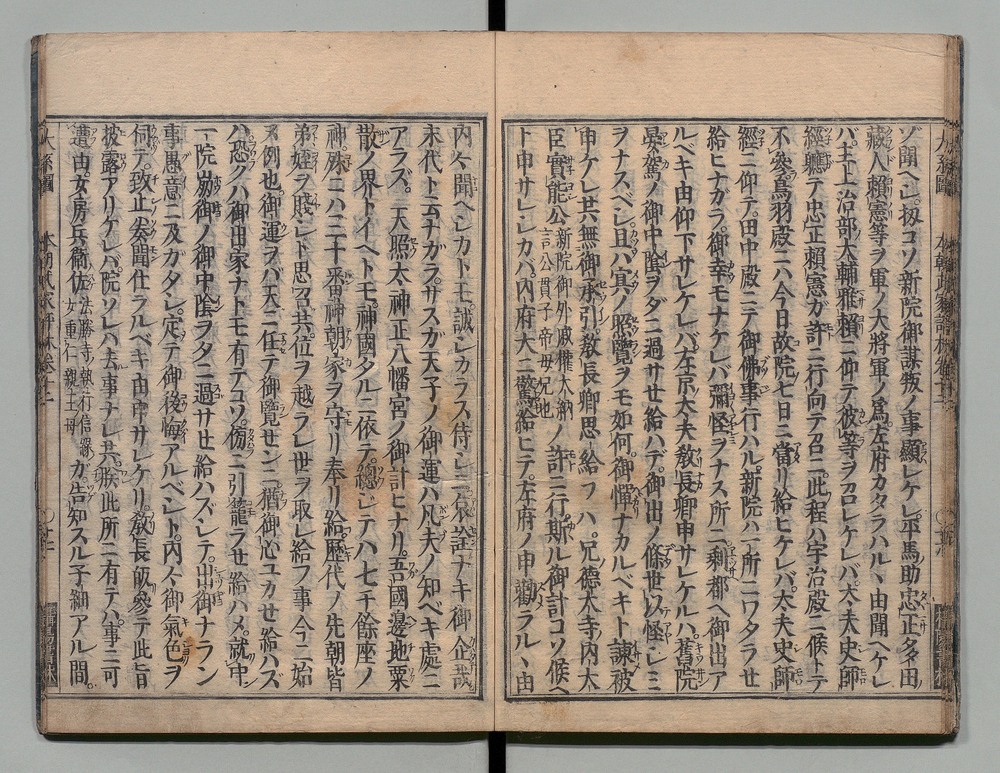 ゾ聞ヘシ扨コソ新院御謀叛ノ事顯レケレ平馬助忠正多田
藏人賴憲等ヲ軍ノ大將軍ノ爲左府カタラハルヽ由聞ヘケレ
バ主上治部大輔雅賴ニ仰テ彼等ヲ召ケレバ大夫史師
經聽テ忠正賴憲ガ許ニ行向テ召ニ此程ハ宇治殿ニ候トテ
不參鳥羽殿ニハ今日故院七日ニ當リ給ヒケレバ大夫史師
經ニ仰テ田中殿ニテ御佛事行ハル新院ハ一所ニワタラせ
給ヒナガラ御幸モナケレバ彌怪ヲナス所ニ剩都ヘ御出ア
ルベキ由仰下サレケレバ左京大夫敎長卿申サレケルハ舊院
晏駕ノ御中陰ヲダニ過サせ給ハデ御出ノ條世以怪シミ
ヲナスベシ且ハ冥ノ照覽ヲモ如何御憚ナカルベキト諫被
申ケレ共無御承引敎長卿思給フハ兄德大寺内大
臣實能公新院御外戚權大納言公實子帝母兄也ノ許ニ行斯ル御計コソ候ヘ
ト申サレシカバ内府大ニ驚給ヒテ左府ノ申勸ラルヽ由
内々聞ヘシカト モ誠シカラス侍シニ詮ナキ御企哉
末代ト云ナガラサスガ天子ノ御運ハ凡夫ノ知ベキ處ニ
アラズ天照太神正八幡宮ノ御計ヒナリ吾國邊地粟
散ノ界トイヘトモ神國タルニ依テ總シテハ七千餘座ノ
神殊ニハ三十番神朝家ヲ守リ奉リ給歷代ノ先朝皆
弟姪ヲ賤シト思召共位ヲ越ラレ世ヲ取レ給フ事今ニ始
ヌ例也御運ヲバ天ニ任テ御覽せンニ猶御心ユカせ給ハズ
ハ恐クハ御出家ナトモ有テコソ傍ニ引籠ラせ給ハメ就中
一院崩御ノ御中陰ヲタニ過サせ給ハズシテ出御ナラン
事愚意ニ及ガタシ定テ御後悔アルベシト内々御氣色ヲ
伺テ致止奏聞仕ラルベキ由申サレケリ敎長皈參テ此旨
披露アリケレバ院ソレハ去事ナレ共朕此所ニ有テハ事ニ可
遭由女房兵衞佐法勝寺執行信緣女重仁親王母ガ告知スル子細アル間
大系圖 本朝武家評林卷十二